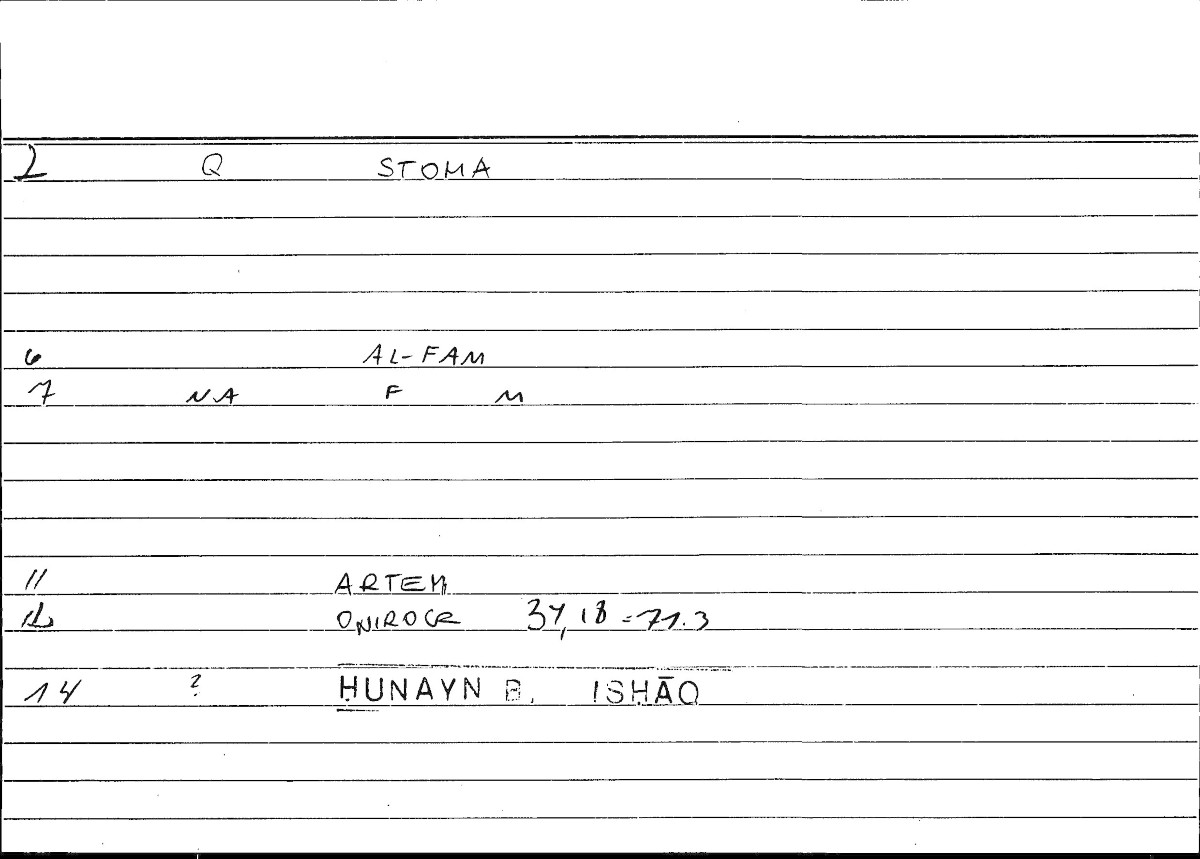 2 Q STOMA
6 AL-FAM
7 NA F M
11 ARTEM
12 ONIROCR 34,18 = 71.3
14 ? ḤUNAYN B. ISḤĀQ